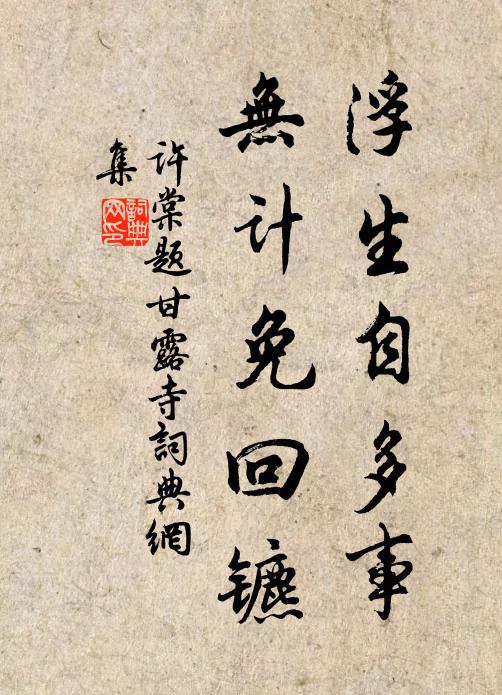 浮生自多事
無计免回镳
许棠题甘露寺詞典網
集
詞典网印